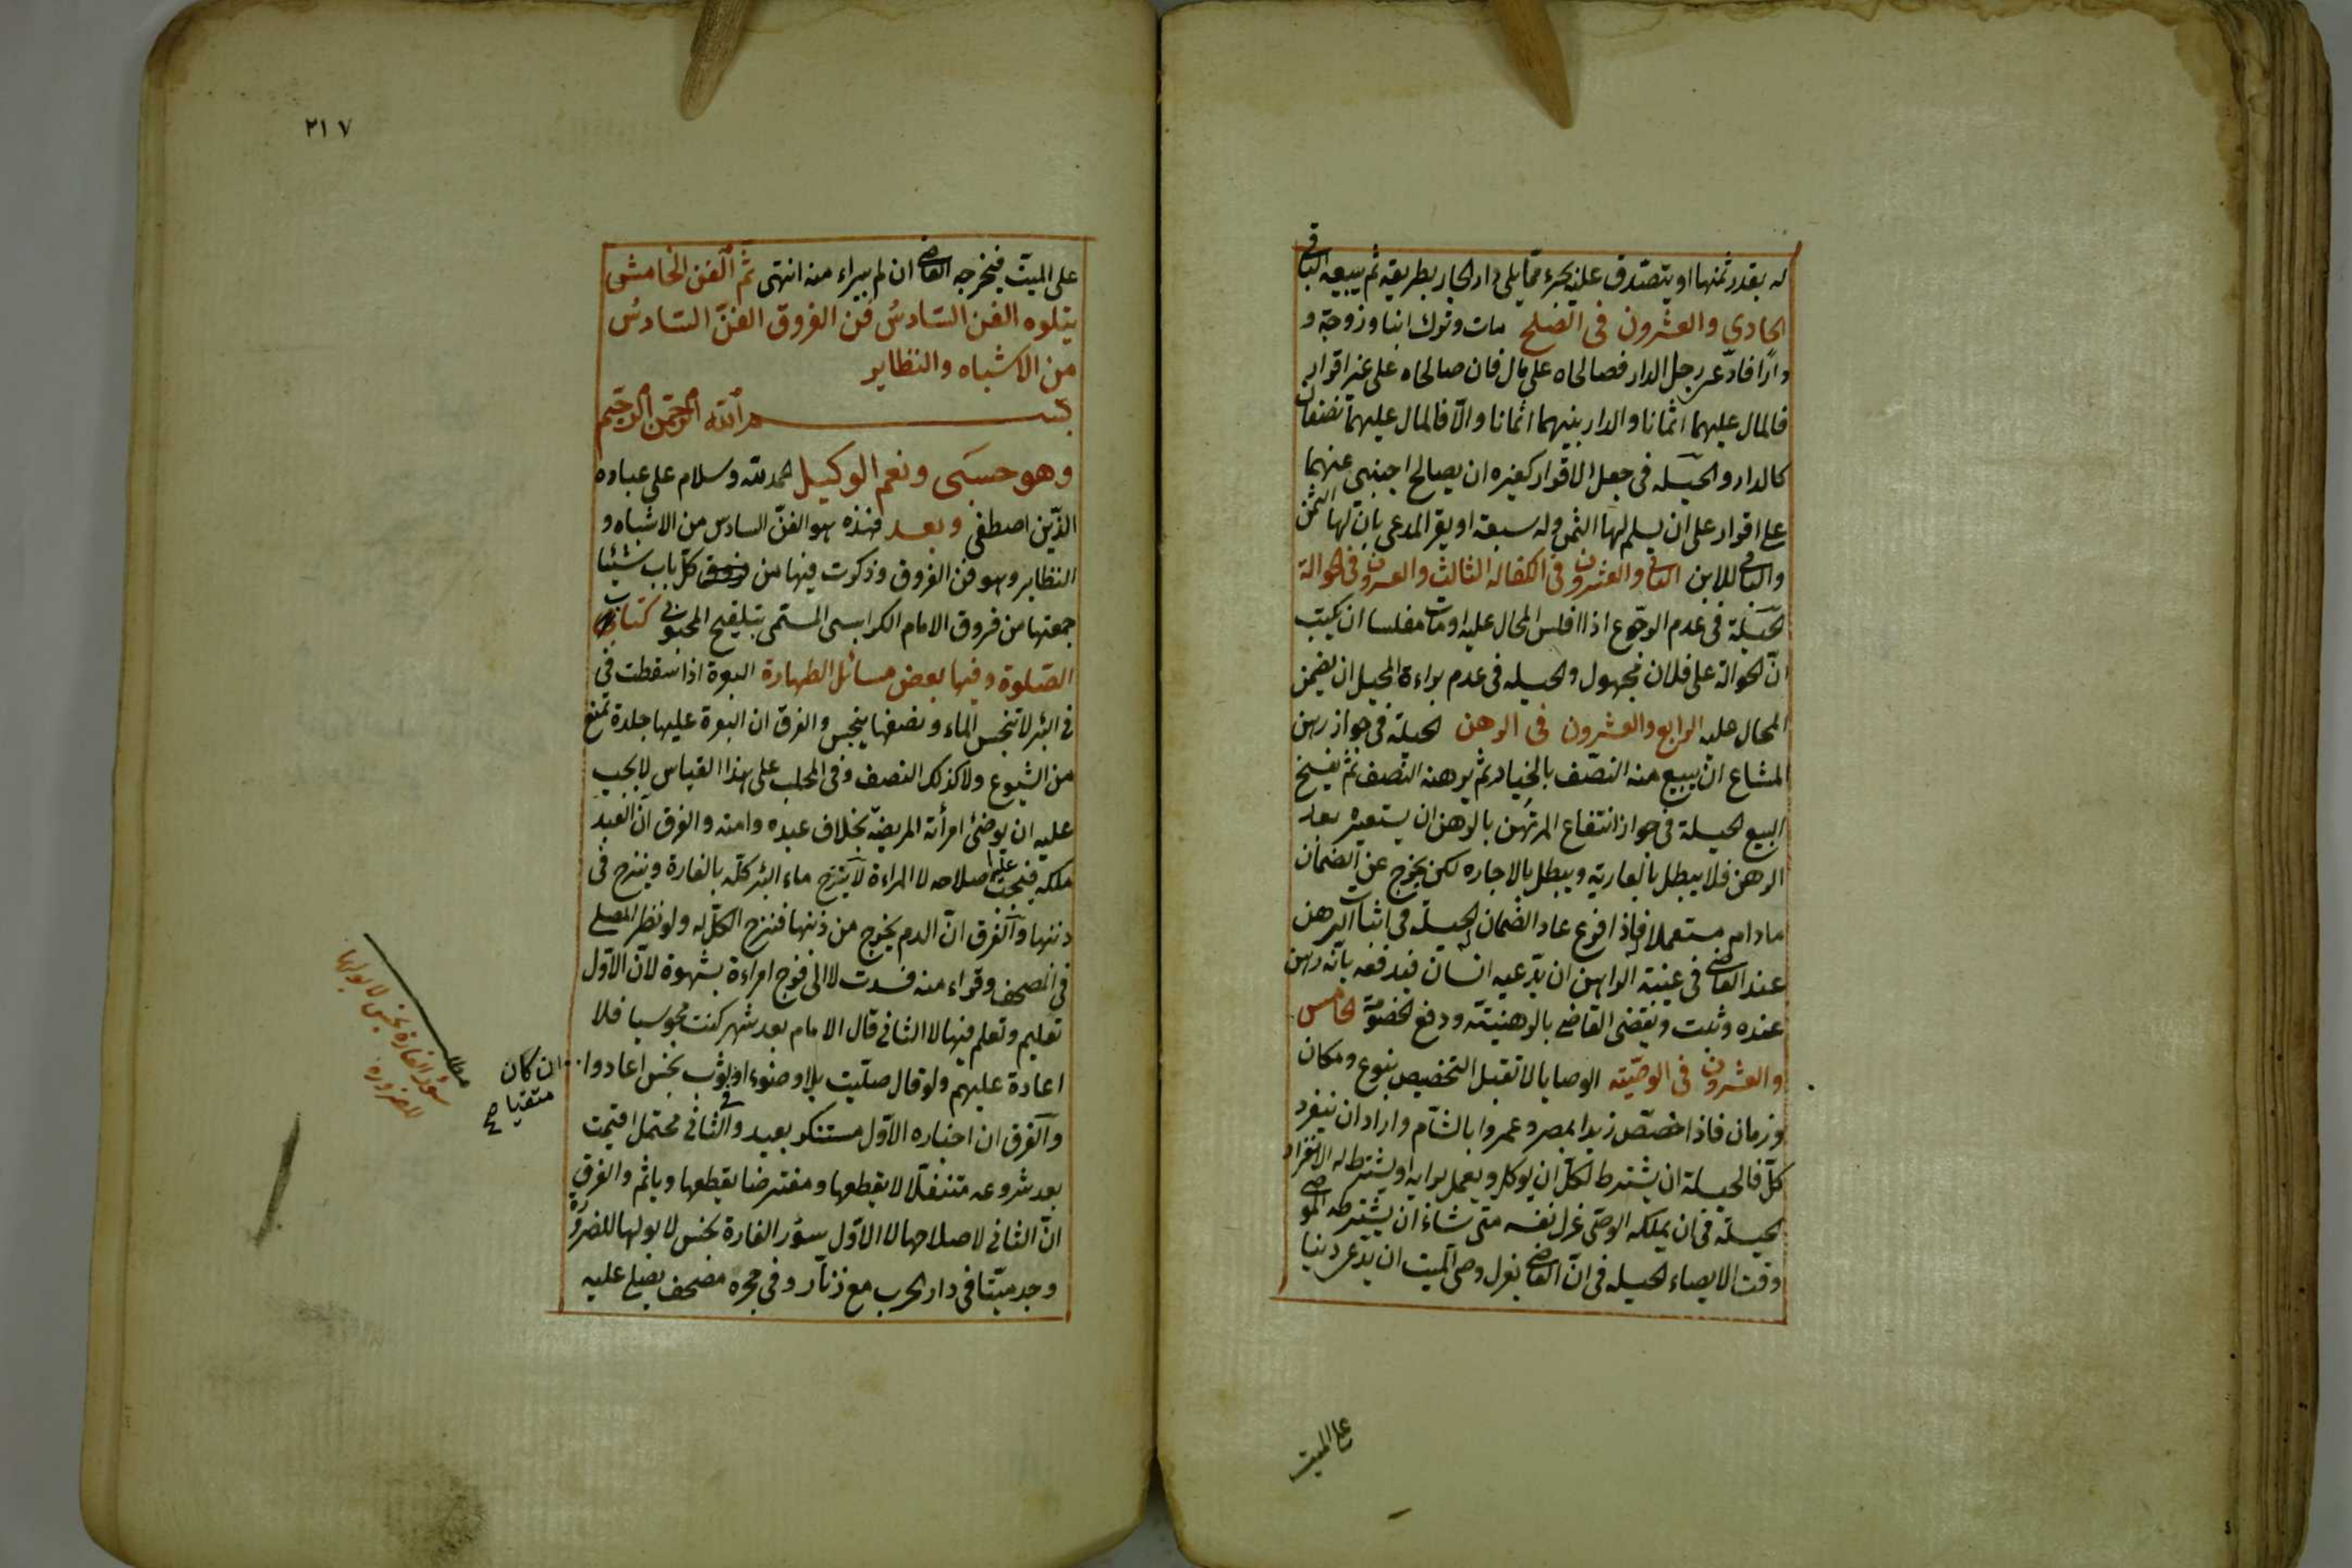 له بقدر ثمنها او يتصدق عليه بجزء مما يلي دار الجار بطريقه ثم يبيعه الباقي
الحادي والعشرون في الصلح مات وترك ابنا وزوجة و
دارًا فادّعى رجل الدار فصالحاه على مال فان صالحاه على غير اقرار
فالمال عليهما اثمانا والدار بينهما اثمانا والّا فالمال عليهما نصفان
كالدار والحيلة في جعل الاقرار كغيره ان يصالح اجنبي عنهما
على اقرار على ان يسلم لها الثمن وله سبعة او يقر المدعي بان لها الثمن
والباقي للابن الثاني والعشرون في الكفالة الثالث والعشرون في الحوالة
الحيلة في عدم الرجوع اذا افلس المحال عليه او مات مفلسا ان يكتب
انّ الحوالة على فلان مجهول والحيله في عدم براءة المحيل ان يضمن
المحال عليه الرابع والعشرون في الرهن الحيلة في جواز رهن
المشاع ان يبيع منه النصف بالخيار ثم يرهنه النصف ثم يفسخ
البيع الحيلة في جواز انتفاع المرتهن بالرهن ان يستعيره بعد
الرهن فلا يبطل بالعارية ويبطل بالاجاره لكن يخرج عن الضمان
ما دام مستعملا فاذا فرغ عاد الضمان الحيلة في اثبات الرهن
عند القاضي في غيبة الراهن ان يدّعيه انسان فيدفعه بانّه رهن
عنده وثبت ويقضي القاضي بالرهنيته ودفع الخصومة الخامس
والعشرون في الوصيّته الوصايا لا تقبل التخصيص بنوع ومكان
وزمان فاذا خصّص زيدا بمصر وعمروا بالشآم واراد ان ينفرد
كلّ فالحيلة ان يشترط لكلّ ان يوكل ويعمل برايه او يشترط له الانفراد
الحيلة في ان يملك الوصّي عزل نفسه متى شاء ان يشترطه الموصي
وقت الايصاء الحيله في انّ القاضي يعزل وصي الميت ان يدّعى دينا
على الميت
٢١٧
على الميّت فيخرجه القاضي ان لم يبراء منه انتهى ثم الفن الخامس
يتلوه الفن السّادسُ فن الفروق الفنّ السّادسُ
من الاشباه والنظاير
بسم الله الرحمن الرحيم
وهو حسبي ونعم الوكيل الحمد لله وسلام على عباده
الذّين اصطفى وبعد فهذه هو الفنّ السادس من الاشباه و
النظاير وهو فن الفروق وذكرت فيها من كلّ باب شيئا
جمعتها من فروق الامام الكرابيسى المسّمى بتلقيح المحبوبي كتاب
الصّلوة وفيها بعض مسائل الطهارة البعرة اذا سقطت في
في البئر لا تنجس الماء ونصفها ينجس والفرق ان البعرة عليها جلدة تمنع
من الشيوع ولا كذلك النصف وفي المحلب على هذا القياس لا يجب
عليه ان يوضئ امرأته المريضة بخلاف عبده وامته والفرق انّ العبد
ملكه فيجب عليه اصلاحه لا المراءة لا ينزح ماء البئر كلّه بالفارة وينزح في
ذنبها والفرق انّ الدم يخرج من ذنبها فنزح الكلّ له ولو نظر المصلي
في المصحف وقراء منه فسدت لا الى فرج امراءة بشهوة لانّ الاوّل
تعليم وتعلم فيها لا الثاني قال الامام بعد شهر كنت مجوسيا فلا
اعادة عليهم ولو قال صلّيت بلا وضوء او بثوب نجس اعادوا
ان كان
متقيا صح
والفرق ان اخباره الاوّل مستنكر بعيد والثاني محتمل اقيمت
بعد شروعه متنفلّا لا يقطعها ومفترضا يقطعها وياثم والفرق
انّ الثاني لاصلاحها لا الاوّل سؤر الفارة نجس لا بولها للضرورة
وجد ميّتا في دار الحرب مع زنّار وفي حجره مصحف يصلى عليه
مطلب
سؤر الفارة نجس لا بولها
للضرورة